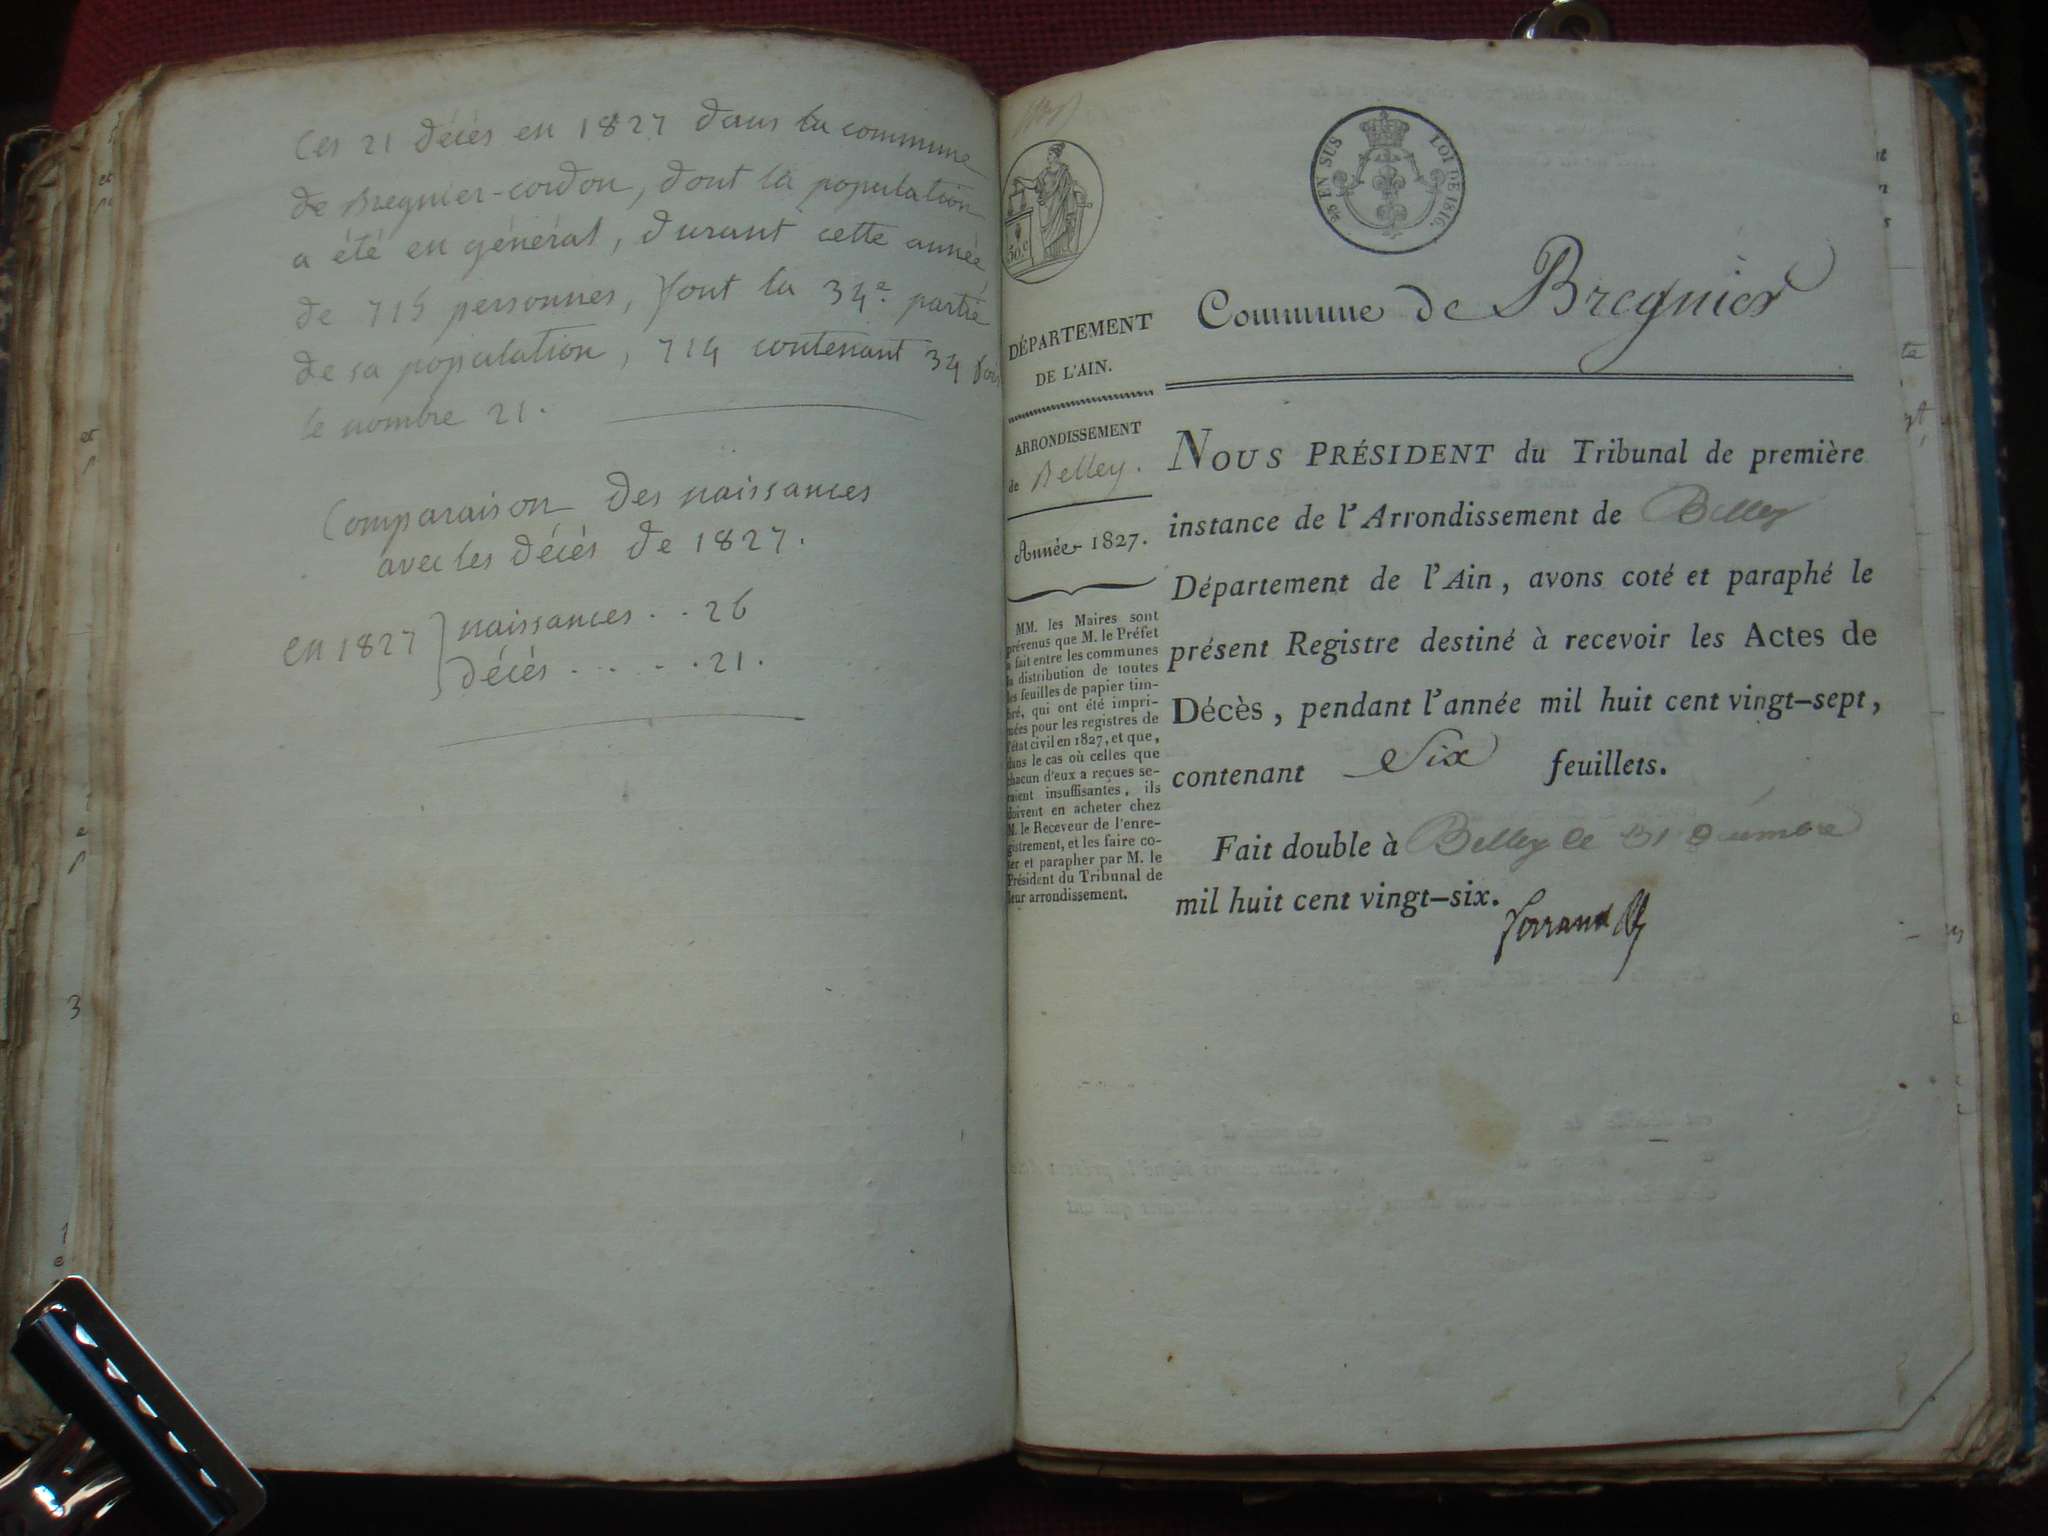 Ces 21 décés en 1827 dans la commune
de Bregnier-cordon, dont la population
a été en général, durant cette année
de 715 personnes, font la 34e. partie
de sa population, 714 contenant 34 fois
le nombre 21.
Comparaison des naissances
avec les décés de 1827.
en 1827 } naissances . . 26
décés . . . . . 21.
50.c
25 EN SUS
LOI DE 1816.
Commune de Bregnier
DÉPARTEMENT
DE L'AIN.
ARRONDISSEMENT
de Belley.
Année 1827.
MM. les Maires sont
prévenus que M. le Préfet
a fait entre les communes
la distribution de toutes
les feuilles de papier tim-
bré, qui ont été impri-
mées pour les registres de
l'état civil en 1827, et que,
dans le cas où celles que
chacun d'eux a reçues se-
raient insuffisantes, ils
doivent en acheter chez
M. le Receveur de l'enre-
gistrement, et les faire co-
ter et parapher par M. le
Président du Tribunal de
leur arrondissement.
NOUS PRÉSIDENT du Tribunal de première
instance de l'Arrondissement de Belley
Département de l'Ain, avons coté et paraphé le
présent Registre destiné à recevoir les Actes de
Décès, pendant l'année mil huit cent vingt-sept,
contenant Six feuillets.
Fait double à Belley le 31 décembre
mil huit cent vingt-six.